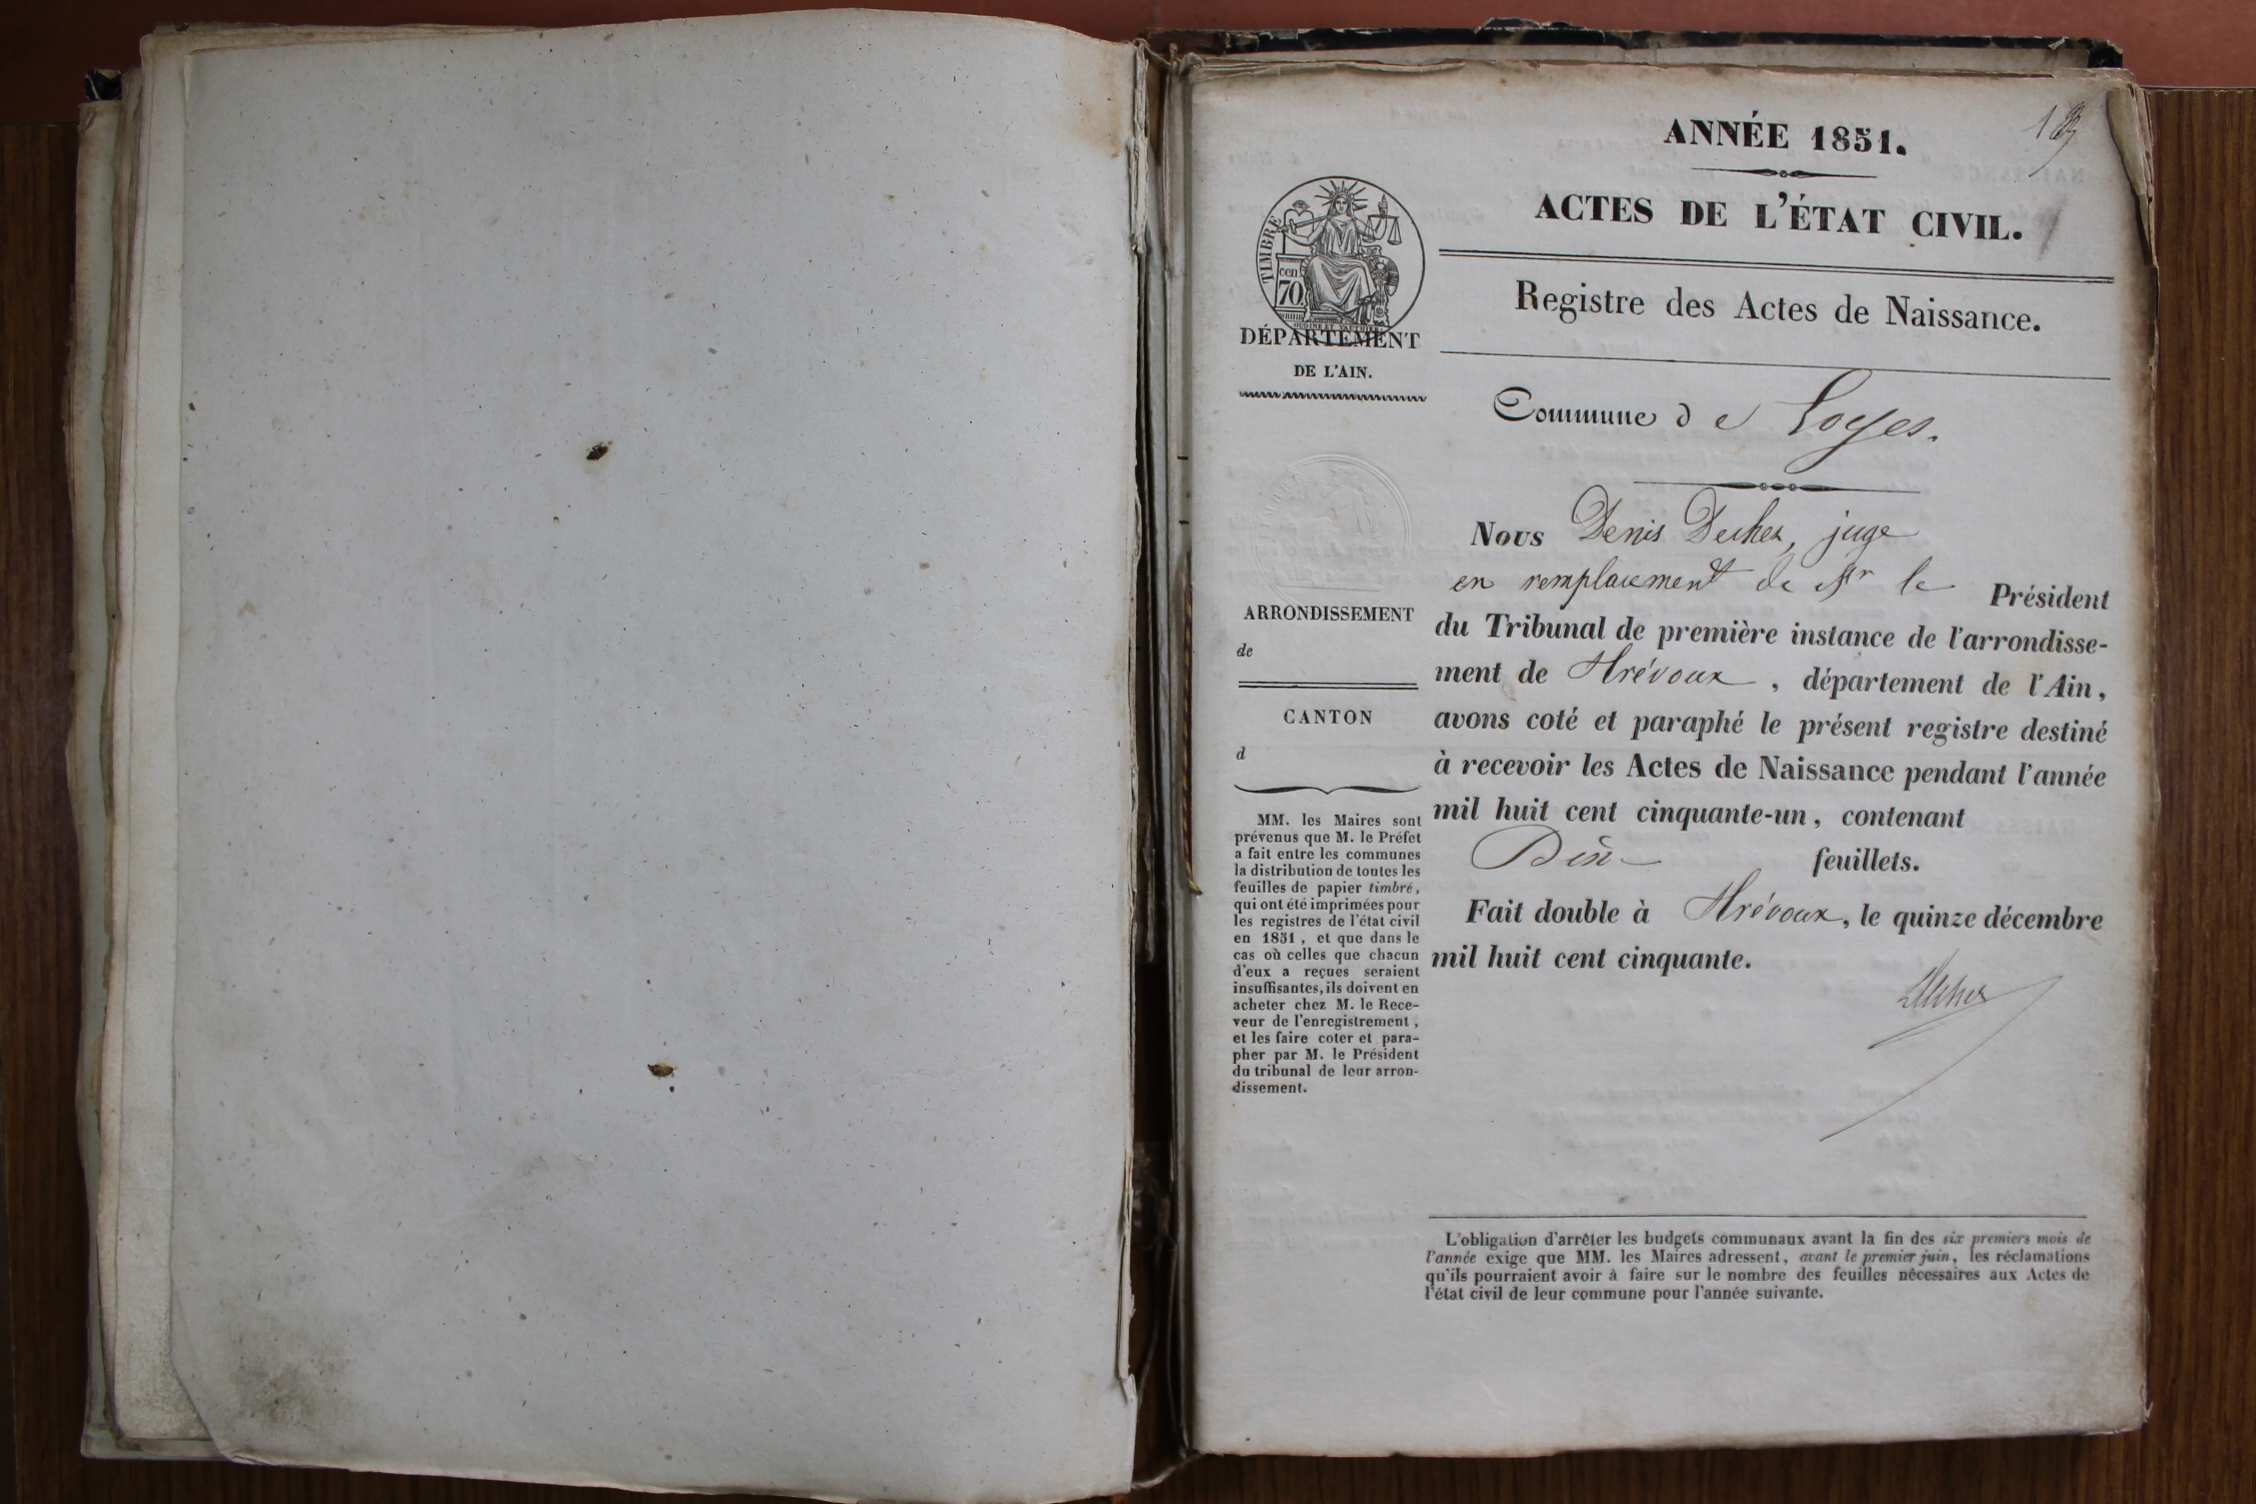 ANNÉE 1851.
ACTES DE L'ÉTAT CIVIL.
Registre des Actes de Naissance.
TIMBRE
cen
70
DÉPARTEMENT
DE L'AIN.
Commune de Loyes.
Nous Denis Ducher, juge
en remplacement de Mr le Président
du Tribunal de première instance de l'arrondisse-
ment de Trévoux, département de l'Ain,
avons coté et paraphé le présent registre destiné
à recevoir les Actes de Naissance pendant l'année
mil huit cent cinquante-un, contenant
Dix feuillets.
Fait double à Trévoux, le quinze décembre
mil huit cent cinquante.
ARRONDISSEMENT
de
CANTON
d
MM. les Maires sont
prévenus que M. le Préfet
a fait entre les communes
la distribution de toutes les
feuilles de papier timbré,
qui ont été imprimées pour
les registres de l'état civil
en 1851, et que dans le
cas où celles que chacun
d'eux a reçues seraient
insuffisantes, ils doivent en
acheter chez M. le Rece-
veur de l'enregistrement,
et les faire coter et para-
pher par M. le Président
du tribunal de leur arron-
dissement.
L'obligation d'arrêter les budgets communaux avant la fin des six premiers mois de
l'année exige que MM. les Maires adressent, avant le premier juin, les réclamations
qu'ils pourraient avoir à faire sur le nombre des feuilles nécessaires aux Actes de
l'état civil de leur commune pour l'année suivante.